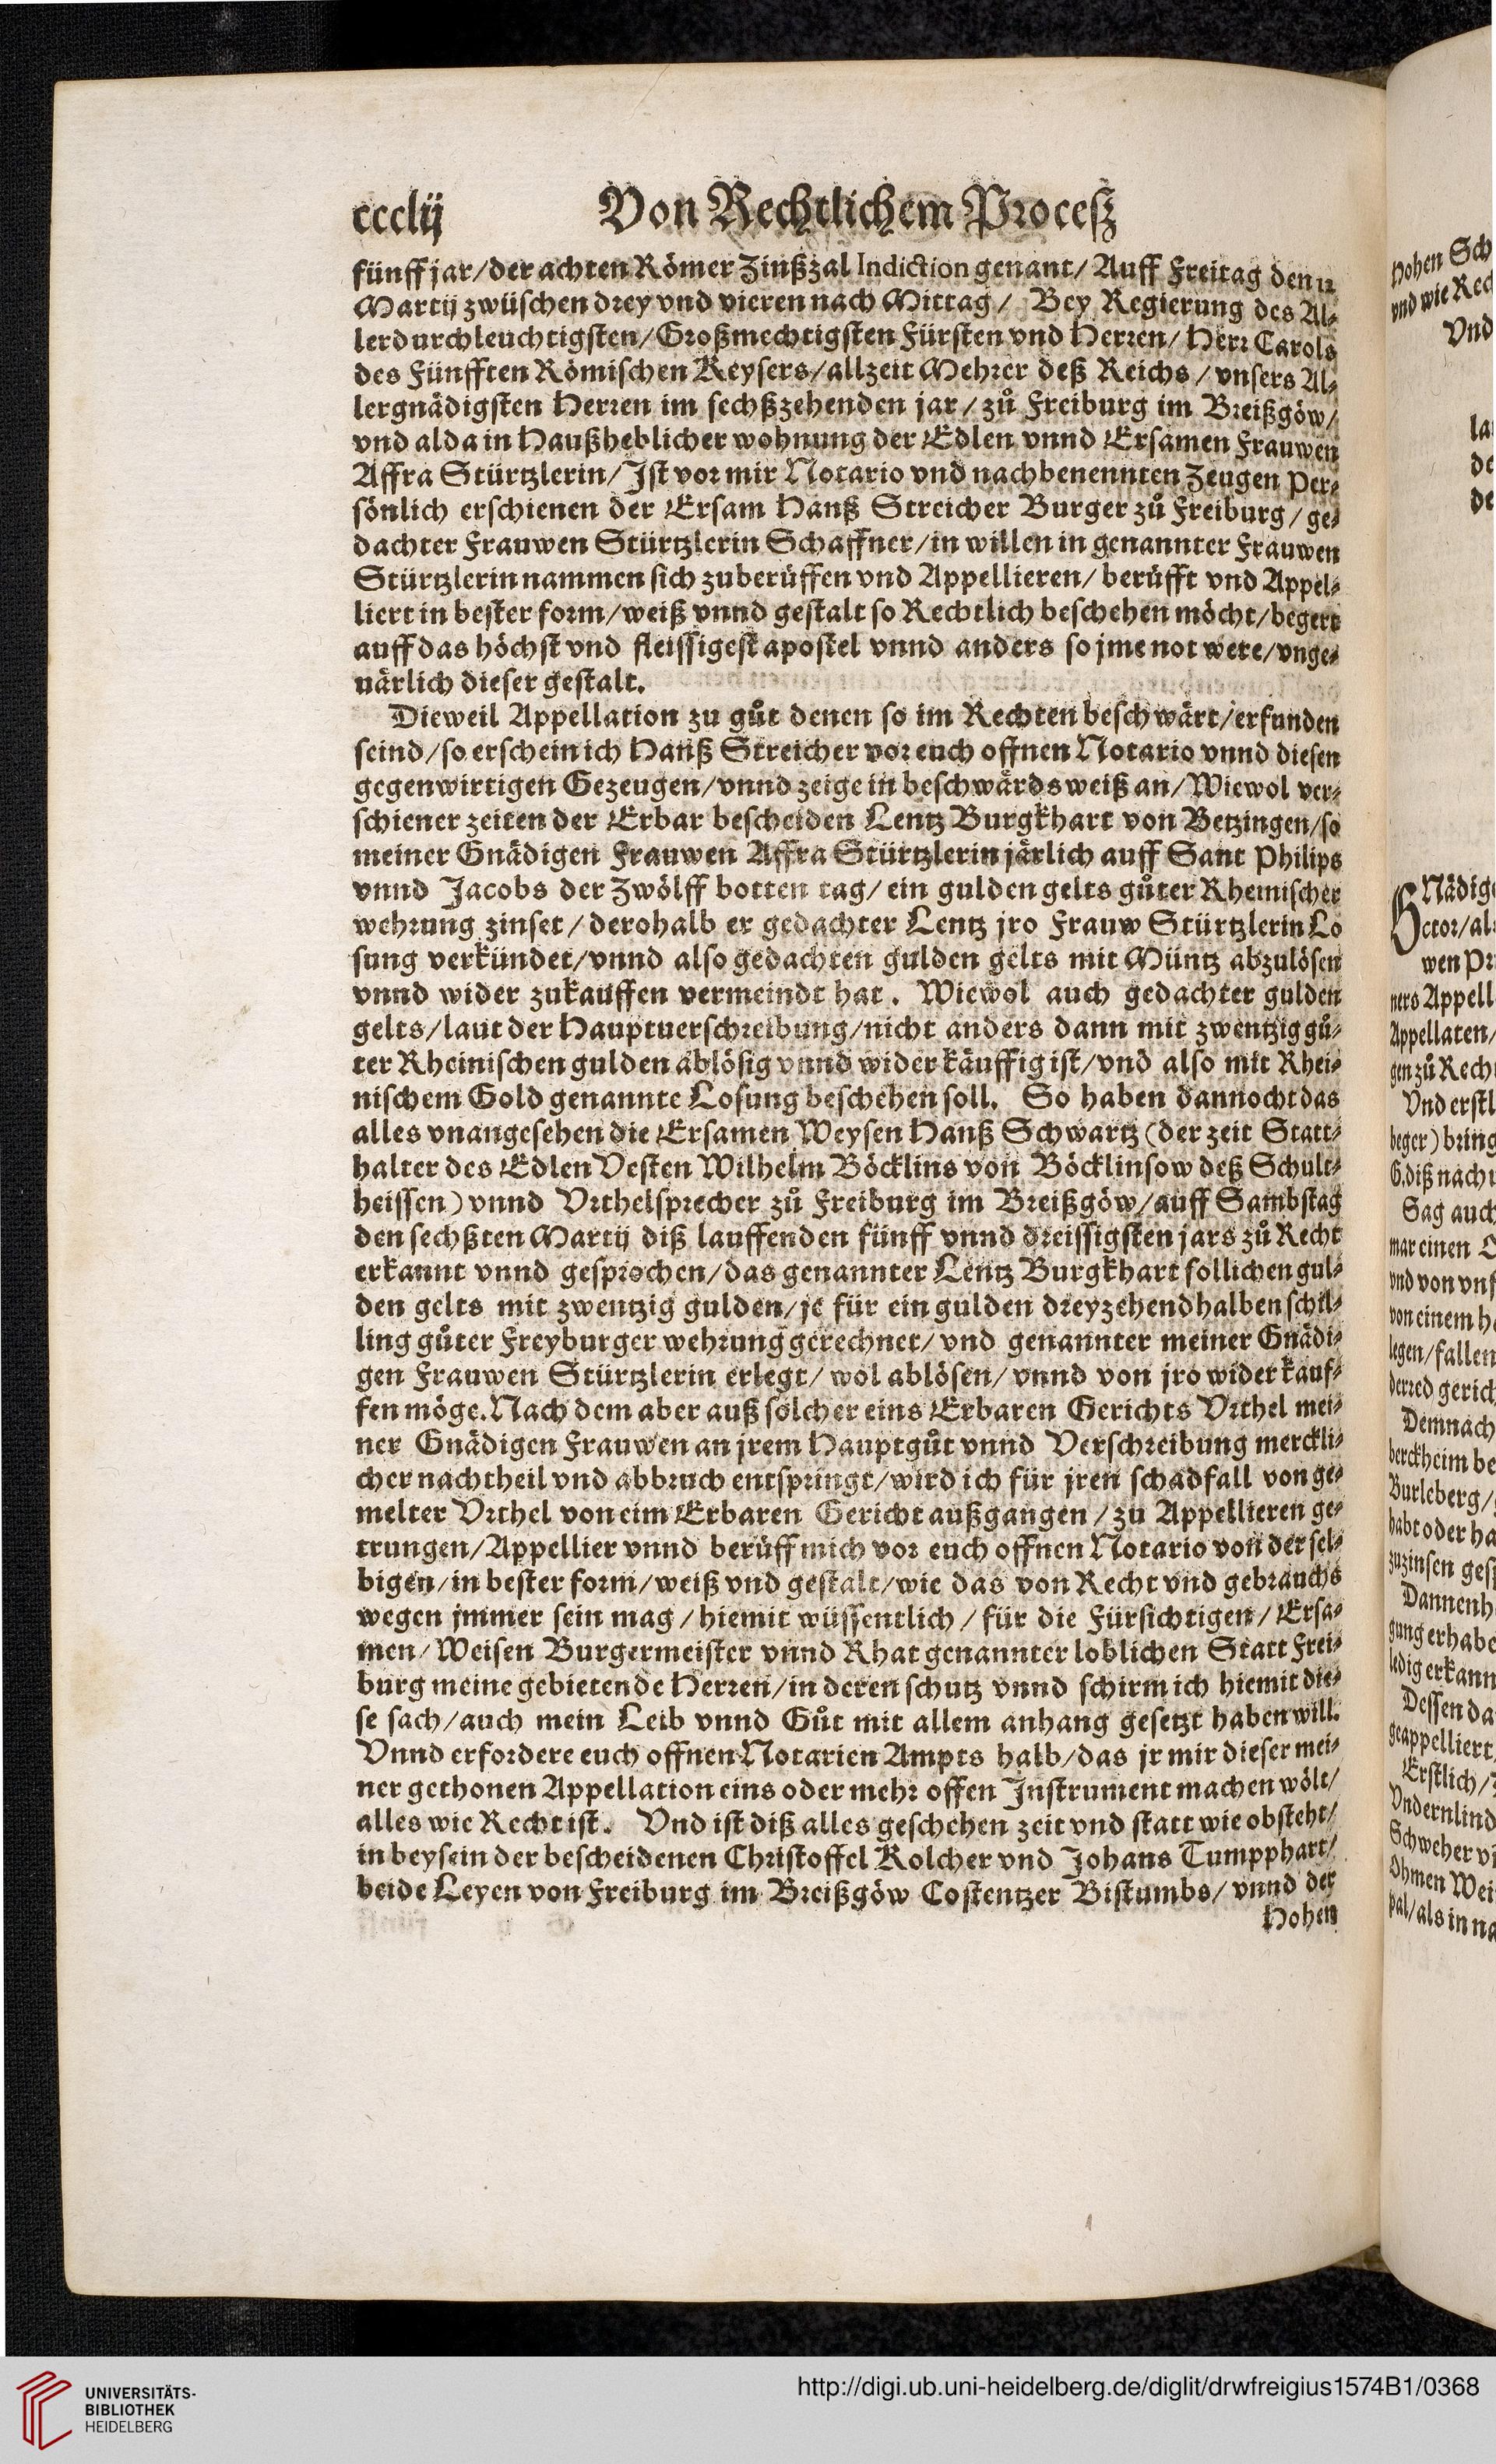 ccclij Von Rechtlichem Proceſz
fünff jar/ der achten Römer Zinßzal Indiction genant/ Auff Freitag den 12
Martij zwüschen drey vnd vieren nach Mittag/ Bey Regierung des Al⸗
lerdurchleuchtigsten/ Großmechtigsten Fürsten vnd Herren/ Herr Carols
des Fünfften Römischen Keysers/ allzeit Mehrer deß Reichs/ vnsers Al⸗
lergnädigsten Herren im sechßzehenden jar/ zů Freiburg im Breißgöw/
vnd alda in Haußheblicher wohnung der Edlen vnnd Ersamen Frauwen
Affra Stürtzlerin/ Ist vor mir Notario vnd nachbenennten Zeugen Per⸗
sönlich erschienen der Ersam Hanß Streicher Burger zů Freiburg/ ge⸗
dachter Frauwen Stürtzlerin Schaffner/ in willen in genannter Frauwen
Stürtzlerin nammen sich zuberüffen vnd Appellieren/ berüfft vnd Appel⸗
liert in bester form/ weiß vnnd gestalt so Rechtlich beschehen möcht/ begert
auff das höchst vnd fleissigest apostel vnnd anders so jme not were/ vnge⸗
uärlich dieser gestalt.
Dieweil Appellation zu gůt denen so im Rechten beschwärt/ erfunden
seind/ so erschein ich Hanß Streicher vor euch offnen Notario vnnd diesen
gegenwirtigen Gezeugen/ vnnd zeige in beschwärds weiß an/ Wiewol ver⸗
schiener zeiten der Erbar bescheiden Lentz Burgkhart von Betzingen/ so
meiner Gnädigen Frauwen Affra Stürtzlerin järlich auff Sant Philips
vnnd Jacobs der Zwölff botten tag/ ein gulden gelts gůter Rheinischer
wehrung zinset/ derohalb er gedachter Lentz jro Frauw Stürtzlerin Lo
sung verkündet/ vnnd also gedachten gulden gelts mit Müntz abzulösen
vnnd wider zukauffen vermeindt hat. Wiewol auch gedachter gulden
gelts/ laut der Hauptuerschreibung/ nicht anders dann mit zwentzig gů⸗
ter Rheinischen gulden ablösig vnnd wider käuffig ist/ vnd also mit Rhei⸗
nischem Gold genannte Losung beschehen soll. So haben dannocht das
alles vnangesehen die Ersamen Weysen Hanß Schwartz (der zeit Statt⸗
halter des Edlen Vesten Wilhelm Böcklins von Böcklinsow deß Schult⸗
heissen) vnnd Vrthelsprecher zů Freiburg im Breißgöw/ auff Sambstag
den sechßten Martij diß lauffenden fünff vnnd dreissigsten jars zů Recht
erkannt vnnd gesprochen/ das genannter Lentz Burgkhart sollichen gul⸗
den gelts mit zwentzig gulden/ je für ein gulden dreyzehendhalben schil⸗
ling gůter Freyburger wehrung gerechnet/ vnd genannter meiner Gnädi⸗
gen Frauwen Stürtzlerin erlegt/ wol ablösen/ vnnd von jro wider kauf⸗
fen möge. Nach dem aber auß solcher eins Erbaren Gerichts Vrthel mei⸗
ner Gnädigen Frauwen an jrem Hauptgůt vnnd Verschreibung merckli⸗
cher nachtheil vnd abbruch entspringt/ wird ich für jren schadfall von ge⸗
melter Vrthel von eim Erbaren Gericht außgangen/ zu Appellieren ge⸗
trungen/ Appellier vnnd berüff mich vor euch offnen Notario von der sel⸗
bigen/ in bester form/ weiß vnd gestalt/ wie das von Recht vnd gebrauchs
wegen jmmer sein mag/ hiemit wüssentlich/ für die Fürsichtigen/ Ersa⸗
men/ Weisen Burgermeister vnnd Rhat genannter loblichen Statt Frei⸗
burg meine gebietende Herren/ in deren schutz vnnd schirm ich hiemit die⸗
se sach/ auch mein Leib vnnd Gůt mit allem anhang gesetzt haben will.
Vnnd erfordere euch offnen Notarien Ampts halb/ das jr mir dieser mei⸗
ner gethonen Appellation eins oder mehr offen Instrument machen wölt/
alles wie Recht ist. Vnd ist diß alles geschehen zeit vnd statt wie obsteht/
in beysein der bescheidenen Christoffel Kolcher vnd Johans Tumpphart/
beide Leyen von Freiburg im Breißgöw Costentzer Bistumbs/ vnnd der
Hohen
Hohen Sch
vnd wie Rec
Vnd
la
de
de
Nädig
ctor/ al
wen Pr
ners Appell
Appellaten/
gen zů Rech
Vnd erstl
beger) bring
G. diß nach
Sag auch
mar einen
vnd von vns
von einem h
legen/ fallen
derred gerich
Demnach
berckheim be
Burleberg/
habt oder ha
zuzinsen ges
Dannenh
gung erhabe
ledig erkann
Dessen da
geappelliert
Erstlich/
Vndernlind
Schweher vi
Ohmen Wei
pal/ als in na
UNIVERSITÄTS-
BIBLIOTHEK
HEIDELBERG
http://digi.ub.uni-heidelberg.de/diglit/drwfreigius1574B1/0368